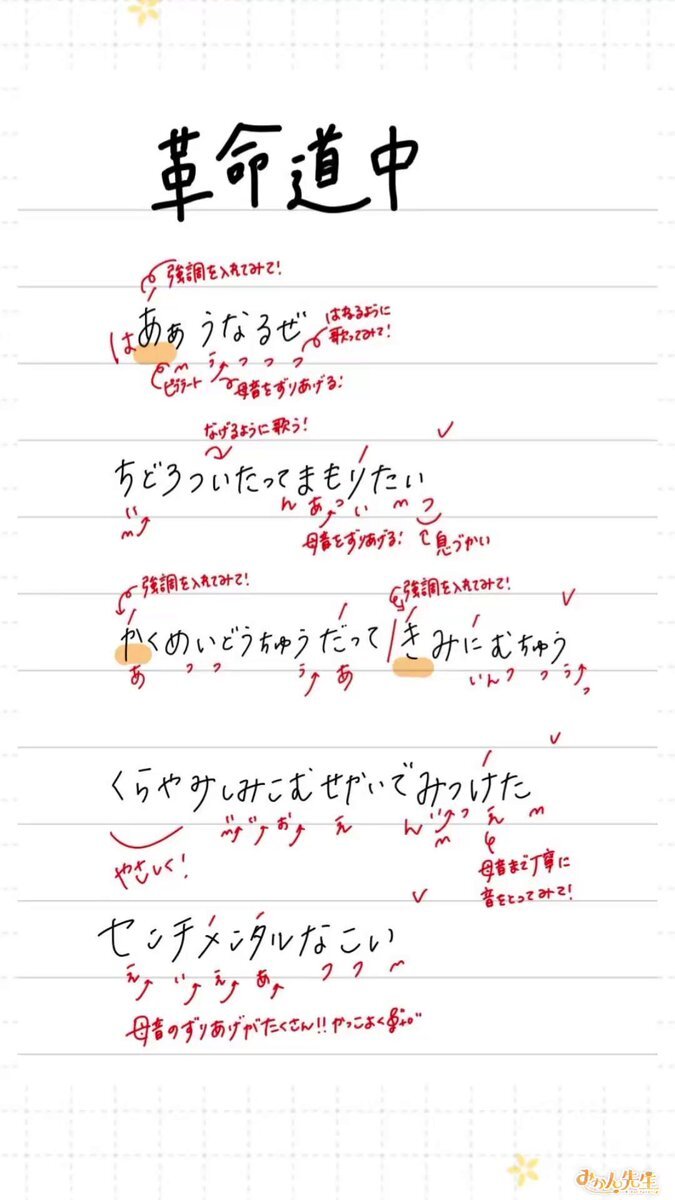 革命道中
強調を入れてみて!
はああぁうなるぜ
はねるように
歌ってみて!
う っ っ っ
ビブラート
母音をずりあげる!
なげるように歌う!
ちどろついたってまもりたい
い
ん あ っ い
母音をずりあげる!
息づかい
強調を入れてみて!
強調を入れてみて!
かくめいどうちゅうだって きみにむちゅう
あ っ っ う あ いん っ っ う っ
くらやみしみこむせかいでみつけた
お え ん い っ え
やさしく!
母音まで丁寧に
音をとってみて!
センチメンタルなこい
え い え あ っ っ
母音のずりあげがたくさん!!かっこよく
みかん先生